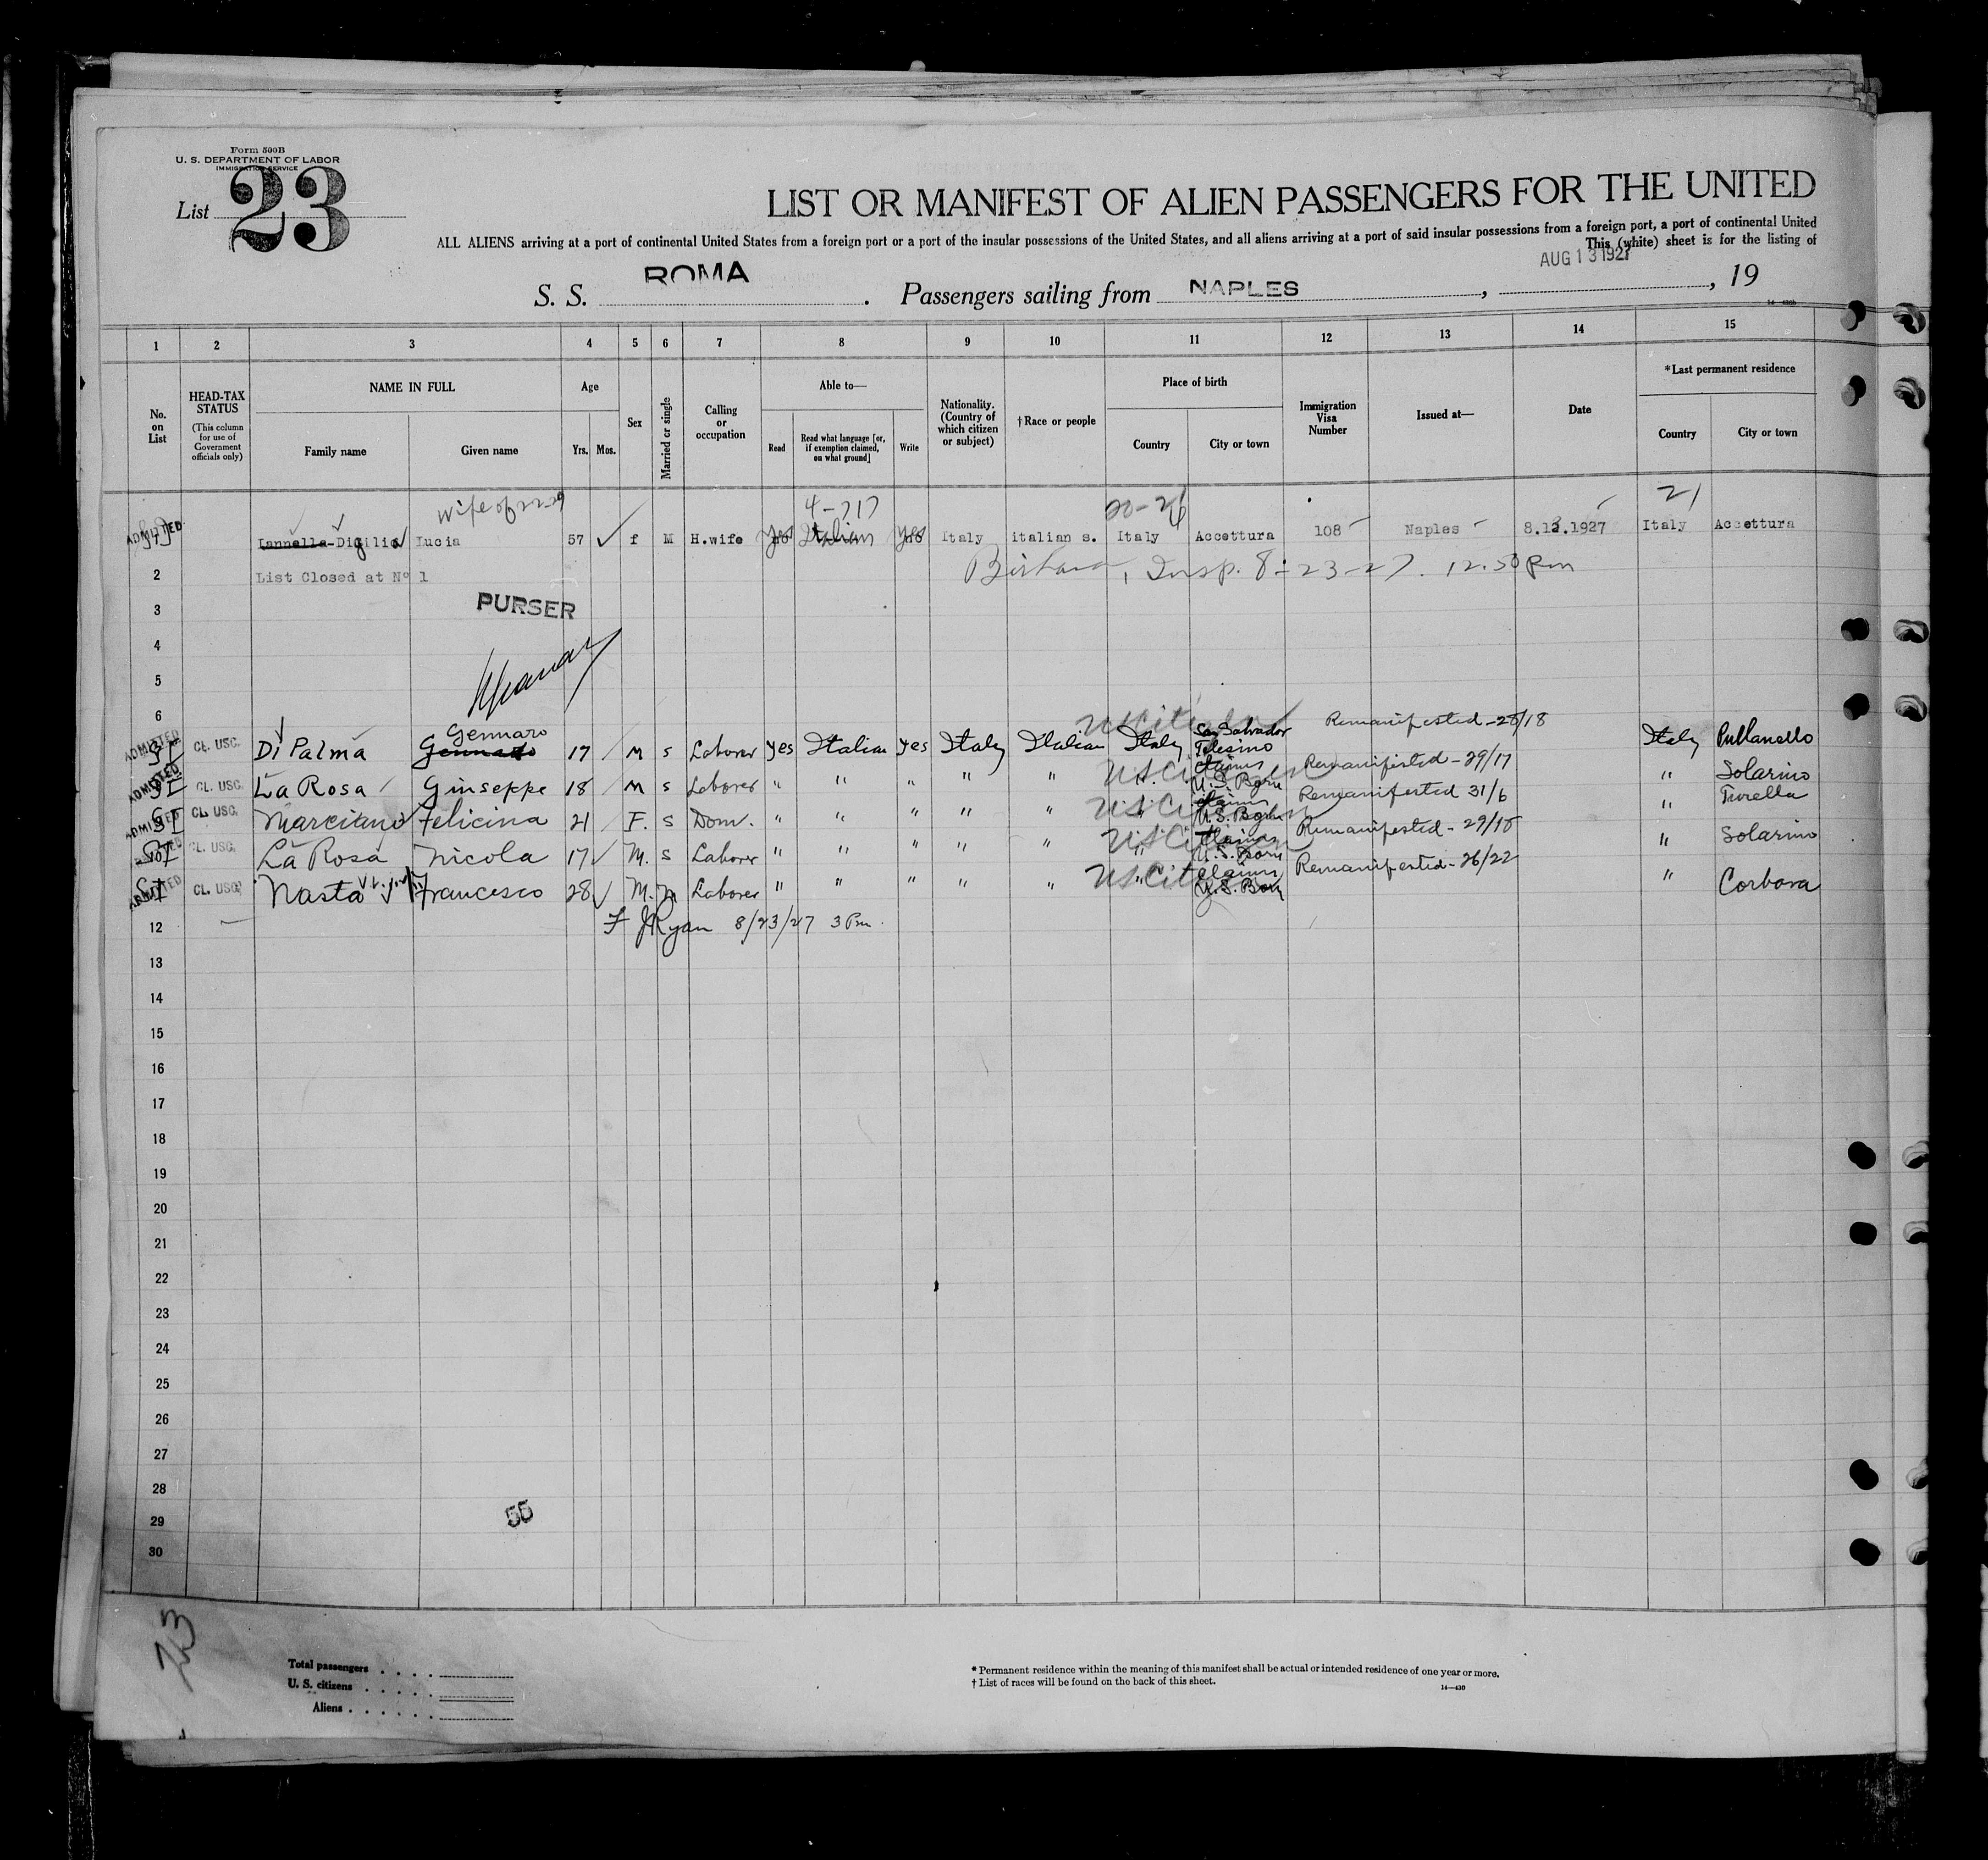 Form 500B
U. S. DEPARTMENT OF LABOR
IMMIGRATION SERVICE
List 23
LIST OR MANIFEST OF ALIEN PASSENGERS FOR THE UNITED
ALL ALIENS arriving at a port of continental United States from a foreign port or a port of the insular possessions of the United States, and all aliens arriving at a port of said insular possessions from a foreign port, a port of continental United
This (white) sheet is for the listing of
AUG 13 1927
S. S. ROMA. Passengers sailing from NAPLES, , 19
14—430b
1 2 3 4 5 6 7 8 9 10 11 12 13 14 15
No. on List
HEAD-TAX STATUS (This column for use of Government officials only)
NAME IN FULL
Family name
Given name
Age
Yrs. Mos.
Sex
Married or single
Calling or occupation
Able to—
Read
Read what language [or, if exemption claimed, on what ground]
Write
Nationality. (Country of which citizen or subject)
†Race or people
Place of birth
Country
City or town
Immigration Visa Number
Issued at—
Date
*Last permanent residence
Country
City or town
wife of 22-29 4-717 20-26 21
ADMITTED Iannella-Digilio Lucia 57 f M H.wife yes Italian yes Italy italian s. Italy Accettura 108 Naples 8.13.1927 Italy Accettura
2 List Closed at Nº 1 Insp. 8-23-27. 12.30 Pm
3 PURSER
4
5
6 Gennaro US Citizen San Salvador Remanifested - 28/18
ADMITTED SI CL. USC. Di Palma Gennaro 17 M s Laborer Yes Italian Yes Italy Italian Italy Telesino Italy
ADMITTED SI CL. USC. La Rosa Giuseppe 18 M s Laborer " " " " " US Citizen claims U.S. Born Remanifested - 29/17 " Solarino
ADMITTED SI CL. USC. Marciano Felicina 21 F. s Dom. " " " " " US Citizen claims U.S. Born Remanifested 31/6 "
ADMITTED SI CL. USC. La Rosa Nicola 17 M. s Laborer " " " " " US Citizen claims U.S. Born Remanifested - 29/18 " Solarino
ADMITTED SI CL. USC. Nasta Francesco 28 M. m Laborer " " " " " US Citizen claims U.S. Born Remanifested - 26/22 " Corbara
12 F J Ryan 8/23/27 3 Pm.
13
14
15
16
17
18
19
20
21
22
23
24
25
26
27
28
29 55
30
23
Total passengers . . . .
U. S. citizens . . . . .
Aliens . . . . . .
* Permanent residence within the meaning of this manifest shall be actual or intended residence of one year or more.
† List of races will be found on the back of this sheet.
14—430